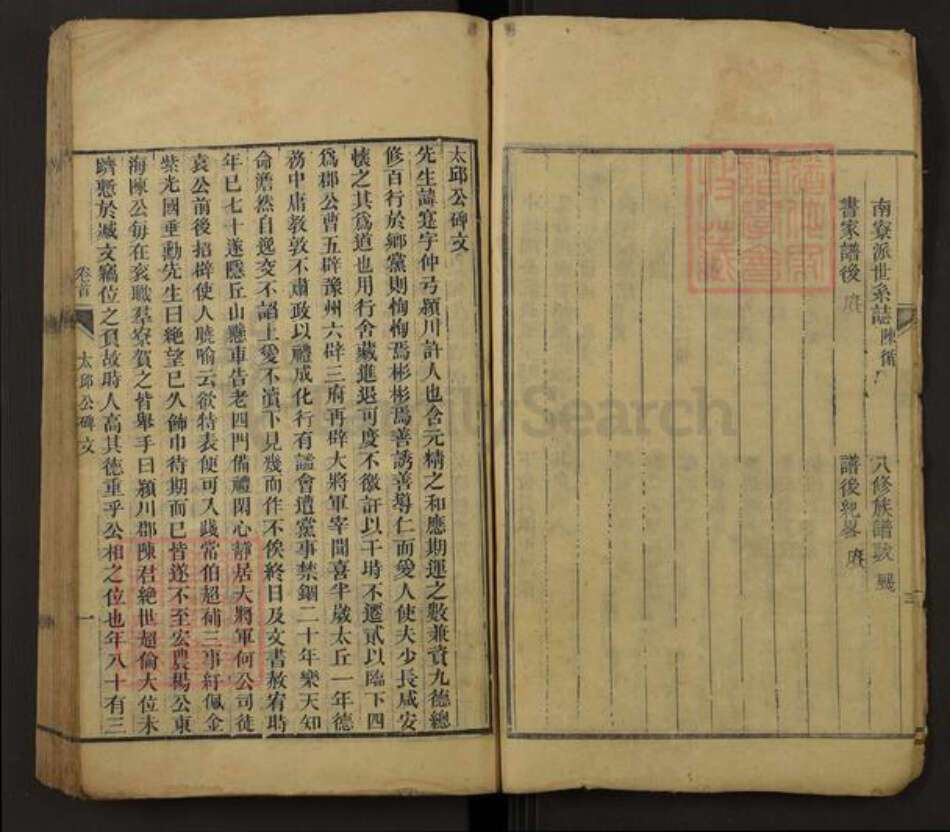 南寮派世系誌 陳循
八修族譜跋
書家譜後
譜後紀畧
三
太邱公碑文
先生諱寔字仲弓潁川許人也含元精之和應期運之數兼資九德總
修百行於鄉黨則恂恂焉彬彬焉善誘善導仁而愛人使夫少長咸安
懷之其爲道也用行舍藏進退可度不徼訐以干時不遷貳以臨下四
爲郡公曹五辟豫州六辟三府再辟大將軍宰聞喜半歲太丘一年德
務中庸教敦不肅政以禮成化行有謐會遭黨事禁錮二十年樂天知
命澹然自逸交不諂上愛不瀆下見幾而作不俟終日及文書赦宥時
年已七十遂隱丘山懸車告老四門備禮閑心靜居大將軍何公司徒
袁公前後招辟使人曉喻云欲特表便可入踐常伯超補三事紆佩金
紫光國垂勳先生曰絶望已久飾巾待期而已皆遂不至宏農楊公東
海陳公每在衮職羣寮賀之皆舉手曰潁川郡陳君絶世超倫大位未
躋慙於减文竊位之負故時人高其德重乎公相之位也年八十有三
卷首
太邱公碑文
一
FamilySearch